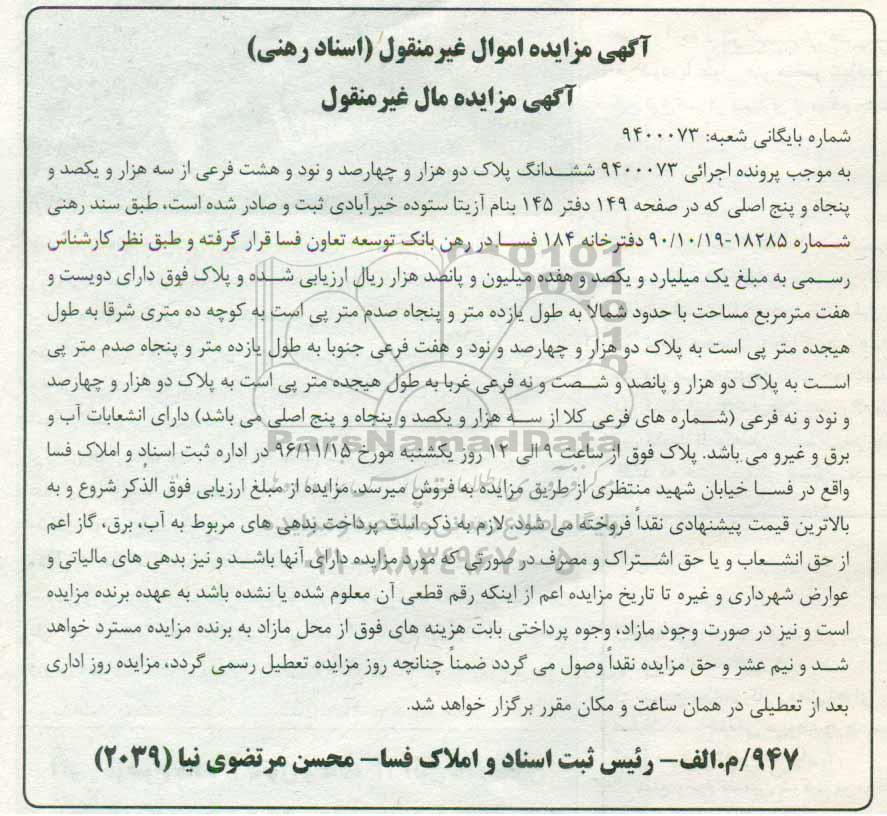 آگهی مزایده اموال غیرمنقول (اسناد رهنی)
آگهی مزایده مال غیرمنقول
شماره بایگانی شعبه: ۹۴۰۰۰۷۳
به موجب پرونده اجرائی ۹۴۰۰۰۷۳ ششدانگ پلاک دو هزار و چهارصد و نود و هشت فرعی از سه هزار و یکصد و
پنجاه و پنج اصلی که در صفحه ۱۴۹ دفتر ۱۴۵ بنام آزیتا ستوده خیرآبادی ثبت و صادر شده است، طبق سند رهنی
شماره ۱۸۲۸۵-۹۰/۱۰/۱۹ دفترخانه ۱۸۴ فسا در رهن بانک توسعه تعاون فسا قرار گرفته و طبق نظر کارشناس
رسمی به مبلغ یک میلیارد و یکصد و هفده میلیون و پانصد هزار ریال ارزیابی شده و پلاک فوق دارای دویست و
هفت مترمربع مساحت با حدود شمالا به طول یازده متر و پنجاه صدم متر پی است به کوچه ده متری شرقا به طول
هیجده متر پی است به پلاک دو هزار و چهارصد و نود و هفت فرعی جنوبا به طول یازده متر و پنجاه صدم متر پی
است به پلاک دو هزار و پانصد و شصت و نه فرعی غربا به طول هیجده متر پی است به پلاک دو هزار و چهارصد
و نود و نه فرعی (شماره های فرعی کلا از سه هزار و یکصد و پنجاه و پنج اصلی می باشد) دارای انشعابات آب و
برق و غیرو می باشد. پلاک فوق از ساعت ۹ الی ۱۲ روز یکشنبه مورخ ۹۶/۱۱/۱۵ در اداره ثبت اسناد و املاک فسا
واقع در فسا خیابان شهید منتظری از طریق مزایده به فروش میرسد. مزایده از مبلغ ارزیابی فوق الذکر شروع و به
بالاترین قیمت پیشنهادی نقداً فروخته می شود. لازم به ذکر است پرداخت بدهی های مربوط به آب، برق، گاز اعم
از حق انشعاب و یا حق اشتراک و مصرف در صورتی که مورد مزایده دارای آنها باشد و نیز بدهی های مالیاتی و
عوارض شهرداری و غیره تا تاریخ مزایده اعم از اینکه رقم قطعی آن معلوم شده یا نشده باشد به عهده برنده مزایده
است و نیز در صورت وجود مازاد، وجوه پرداختی بابت هزینه های فوق از محل مازاد به برنده مزایده مسترد خواهد
شد و نیم عشر و حق مزایده نقداً وصول می گردد ضمناً چنانچه روز مزایده تعطیل رسمی گردد، مزایده روز اداری
بعد از تعطیلی در همان ساعت و مکان مقرر برگزار خواهد شد.
۹۴۷/م.الف- رئیس ثبت اسناد و املاک فسا- محسن مرتضوی نیا (۲۰۳۹)
ParsNamadData
۰۲۱-۸۸۳۴۹۶۷۰-۵